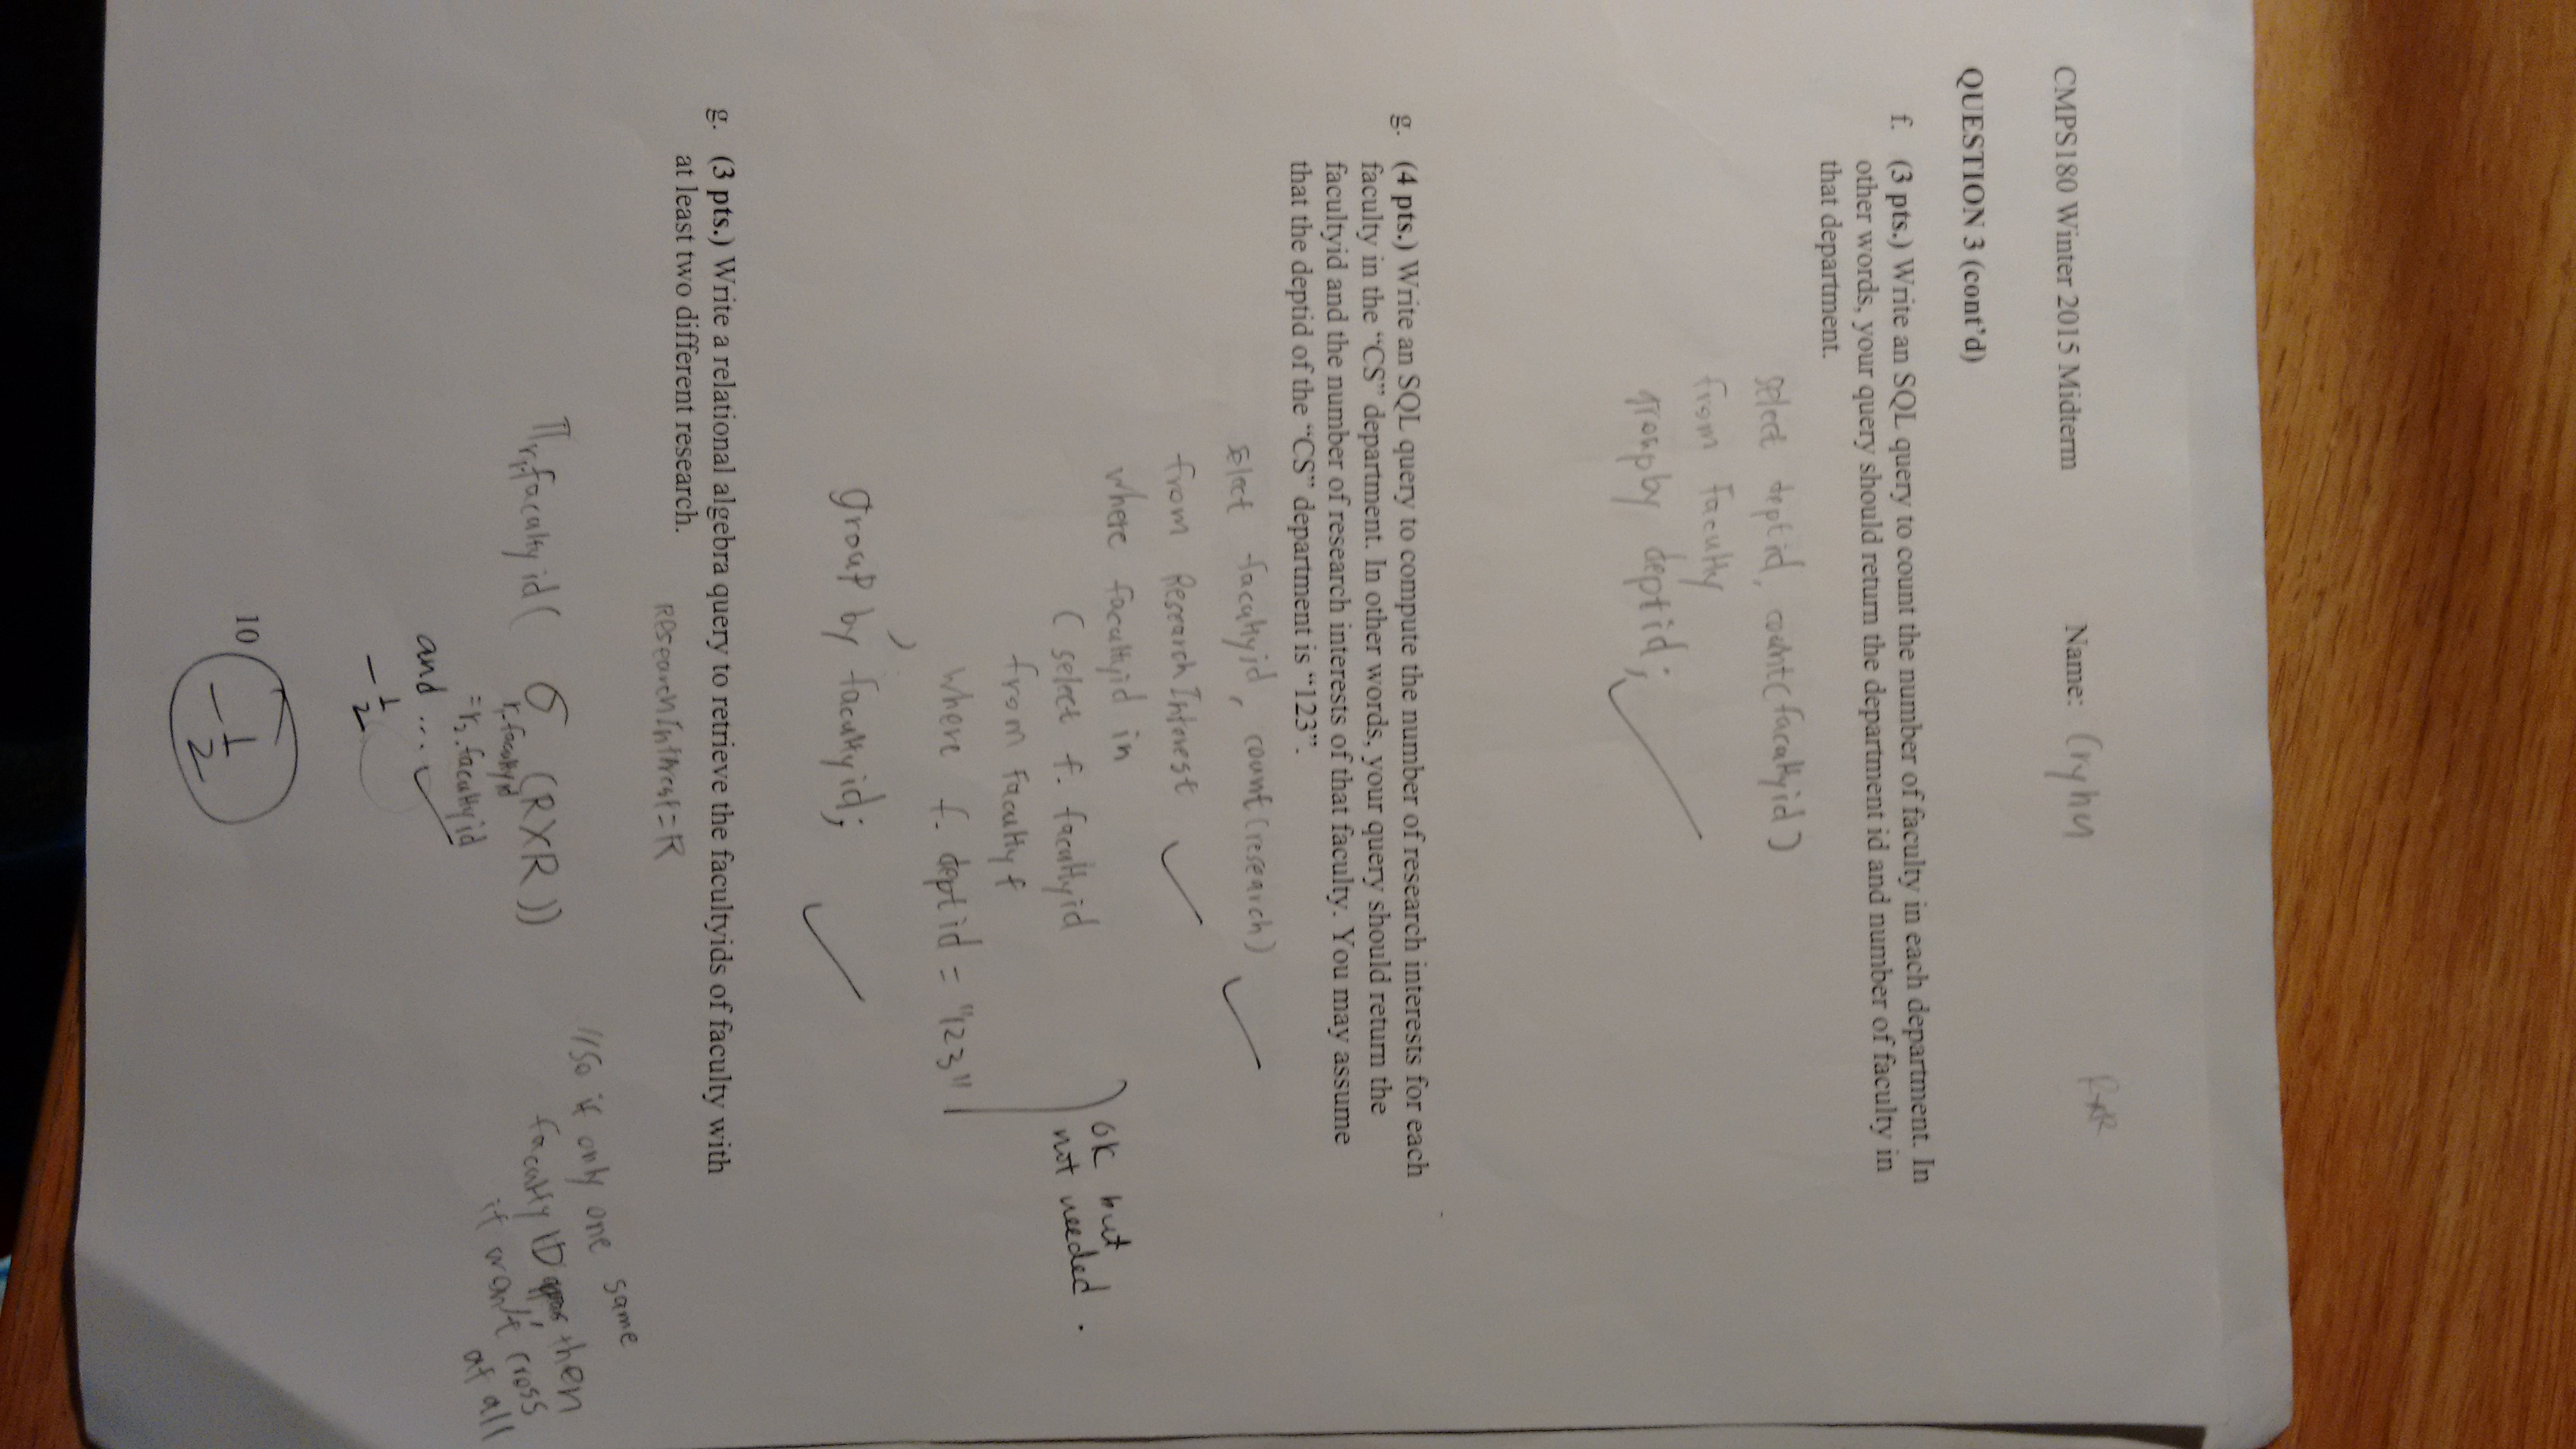 CMPS180 Winter 2015 Midterm Name: RXR
QUESTION 3 (cont’d)
f. (3 pts.) Write an SQL query to count the number of faculty in each department. In
other words, your query should return the department id and number of faculty in
that department.
select deptid, count(facultyid)
from Faculty
group by deptid;
g. (4 pts.) Write an SQL query to compute the number of research interests for each
faculty in the “CS” department. In other words, your query should return the
facultyid and the number of research interests of that faculty. You may assume
that the deptid of the “CS” department is “123”.
select facultyid, count(research)
from ResearchInterest
where facultyid in
( select f. facultyid
ok but
not needed.
from Faculty f
where f. deptid = "123"
)
group by facultyid;
g. (3 pts.) Write a relational algebra query to retrieve the facultyids of faculty with
at least two different research.
ResearchInterest=R
π r1.facultyid( σ (RXR))
r1.facultyid
=r2.facultyid
//So if only one same
faculty ID then
it won't cross
at all
and ... ✓
-1/2
10 -1/2